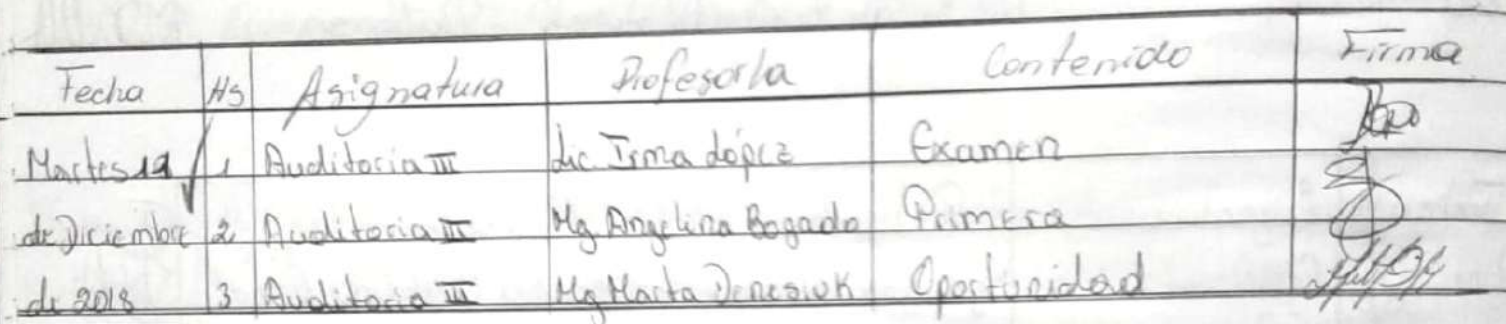 Fecha Hs Asignatura Profesor/a Contenido Firma
Martes 1 Auditoria III Lic. Irma López Examen
de Diciembre 2 Auditoria III Mg Angelina Bogado Primera
de 2018 3 Auditoria III Mg Marta Denesiuk Oportunidad